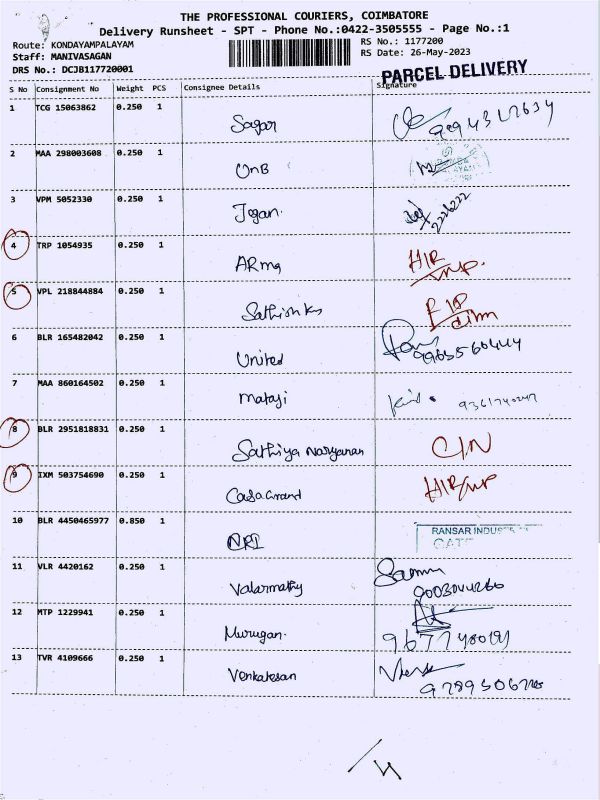 THE PROFESSIONAL COURIERS, COIMBATORE
Delivery Runsheet - SPT - Phone No.:0422-3505555 - Page No.:1
Route: KONDAYAMPALAYAM RS No.: 1177200
Staff: MANIVASAGAN RS Date: 26-May-2023
DRS No.: DCJB117720001
PARCEL DELIVERY
S No Consignment No Weight PCS Consignee Details Signature
1 TCG 15063862 0.250 1
Sagar
2 MAA 298003608 0.250 1
UnB
3 VPM 5052330 0.250 1
Jegan.
222622
4 TRP 1054935 0.250 1
ARma HIR
5 VPL 218844884 0.250 1
Sathish ks
6 BLR 165482042 0.250 1
United
7 MAA 860164502 0.250 1
mataji
8 BLR 2951818831 0.250 1
Sathiya Naryanan C/N
9 IXM 503754690 0.250 1
Casa Grand HIR/NP
10 BLR 4450465977 0.850 1
RANSAR
NRI
11 VLR 4420162 0.250 1
Valarmathy 9003044266
12 MTP 1229941 0.250 1
Murugan.
13 TVR 4109666 0.250 1
Venkatesan
4